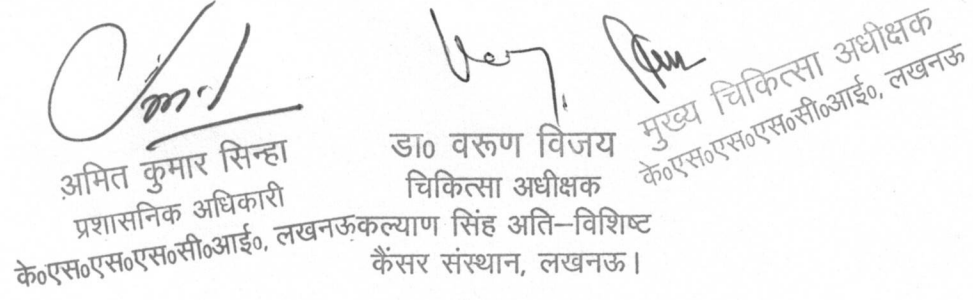 अमित कुमार सिन्हा
प्रशासनिक अधिकारी
के०एस०एस०एस०सी०आई०, लखनऊ
डा० वरूण विजय
चिकित्सा अधीक्षक
कल्याण सिंह अति–विशिष्ट
कैंसर संस्थान, लखनऊ।
मुख्य चिकित्सा अधीक्षक
के०एस०एस०एस०सी०आई०, लखनऊ